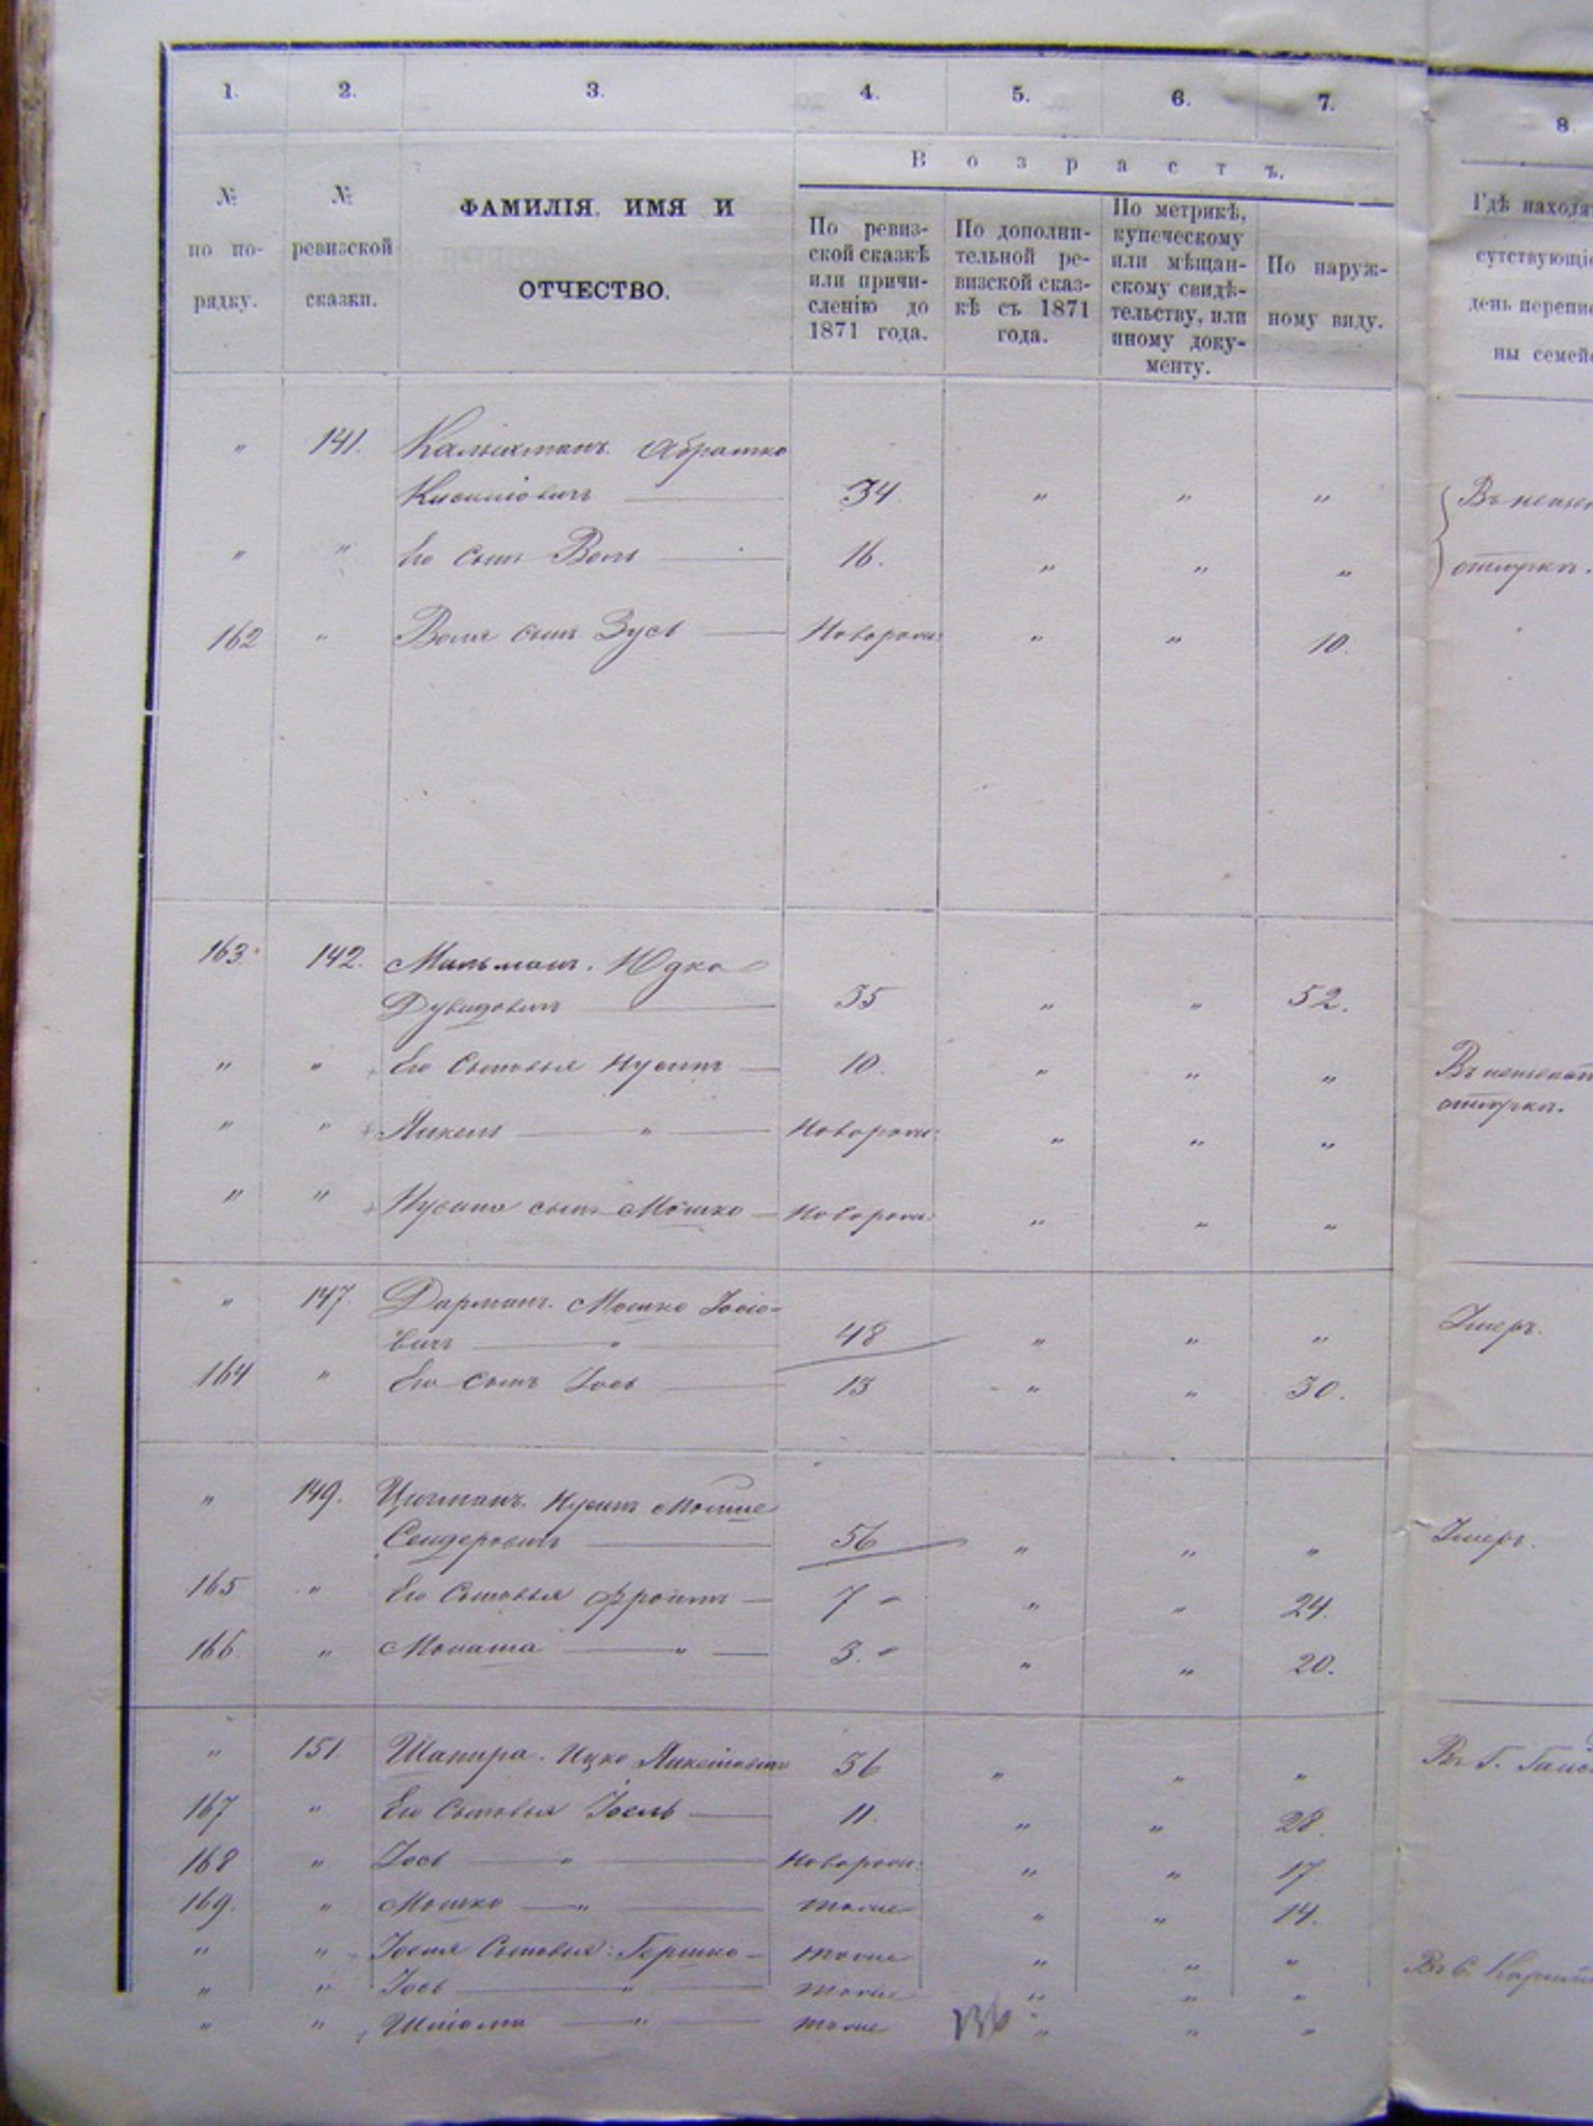 1. 2. 3. 4. 5. 6. 7. 8
В о з р а с т ъ.
№ по по-рядку.
№ ревизской сказки.
ФАМИЛІЯ, ИМЯ И
ОТЧЕСТВО.
По ревиз-
ской сказкѣ
или причи-
сленію до
1871 года.
По дополни-
тельной ре-
визской сказ-
кѣ съ 1871
года.
По метрикѣ,
купеческому
или мѣщан-
скому свидѣ-
тельству, или
иному доку-
менту.
По наруж-
ному виду.
Гдѣ находя
сутствующіе
день перепис
ны семей
" 141. Кальхманъ. Абрашко
34. " " "
" " Его сынъ Волъ 16. " " "
отлучкѣ.
162 " Воля сынъ Зусь Новорож: " " 10.
163 142. Мильманъ. Юдко
Дувидовичъ 35 " " 52.
" " Его сыновья Нусинъ 10. " " "
" " Янкель " Новорож: " " "
отлучкѣ.
" " Нусина сынъ Мошко Новорож: " " "
" 147. Дорманъ. Мошко Іосіо-
вичъ " 48 " " " Умеръ.
164 " Его сынъ Іось 13 " " 30.
" 149. Нусинъ Мошке
Сендеровичъ 56 " " " Умеръ.
165 " Его сыновья Фроимъ 7 " " 24.
166. " Монаша " 3. " " 20.
" 151. Шапира. Ицко Янкелевичъ 36 " " " Въ г.
167 " Его сыновья Іосель 11. " " 28.
168 " Іось " Новорож: " " 17
169. " Мошко " тоже " " 14.
" " Іоселя сыновья: Гершко тоже " " "
" " Іось " тоже " " "
" " Шліома " тоже " " "